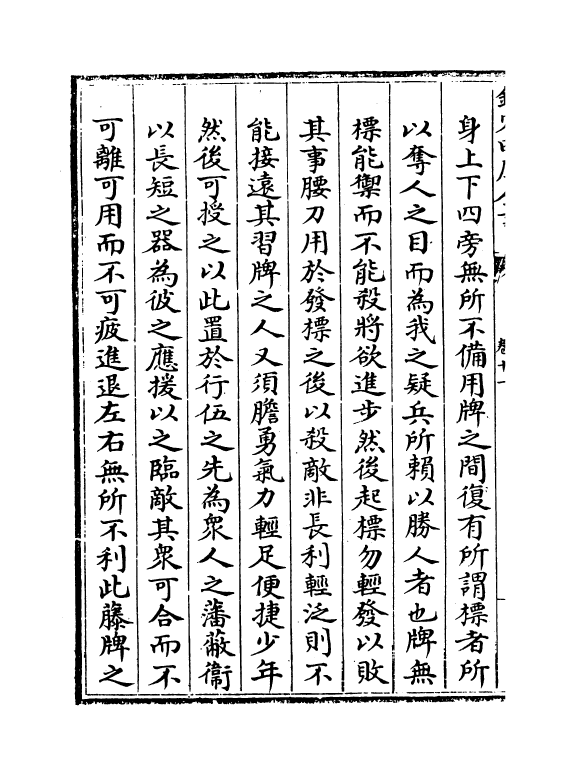 身上下四旁無所不備用牌之間復有所謂標者所
以奪人之目而為我之疑兵所賴以勝人者也牌無
標能禦而不能殺將欲進步然後起標勿輕發以敗
其事腰刀用於發標之後以殺敵非長利輕泛則不
能接遠其習牌之人又須膽勇氣力輕足便捷少年
然後可授之以此置於行伍之先為衆人之藩蔽衞
以長短之器為彼之應援以之臨敵其衆可合而不
可離可用而不可疲進退左右無所不利此藤牌之